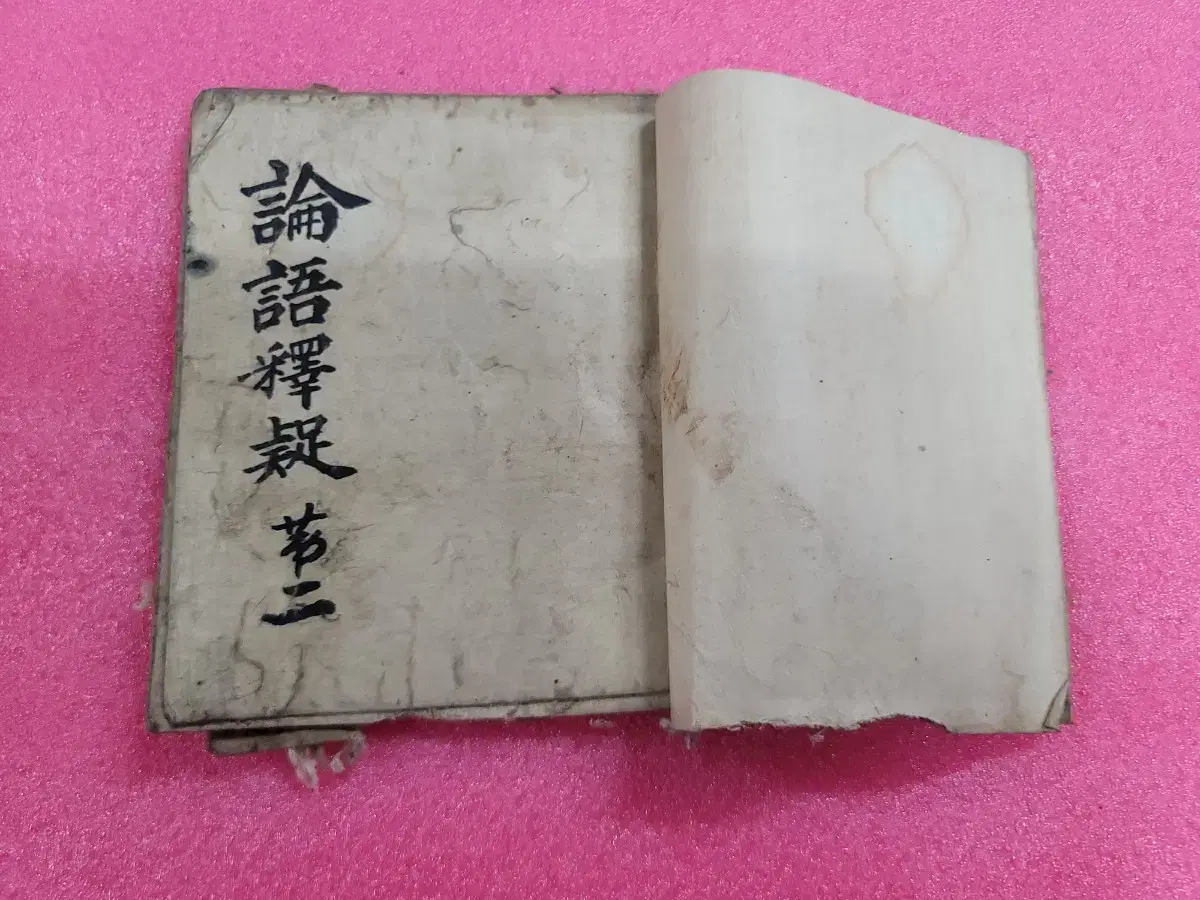 論語釋疑 第二